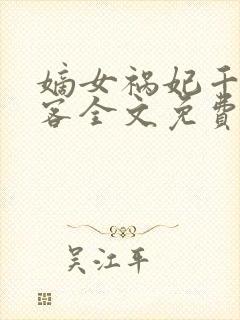 嫡女祸妃千
客全文免费
吴江平